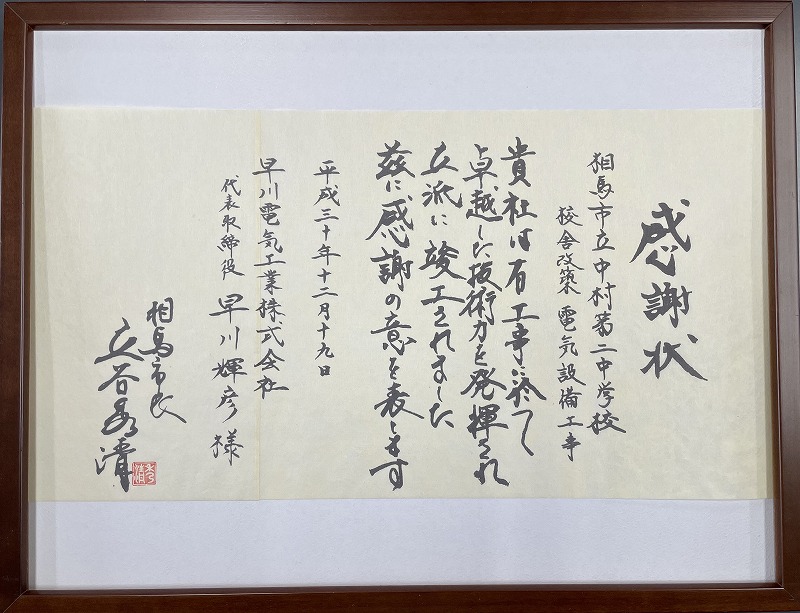 感謝状
相馬市立中村第二中学校
校舎改築電気設備工事
貴社は右工事に於て
卓越した技術力を発揮され
立派に竣工されました
茲に感謝の意を表します
平成三十年十二月十九日
早川電気工業株式会社
代表取締役 早川輝彦様
相馬市長
立谷秀清